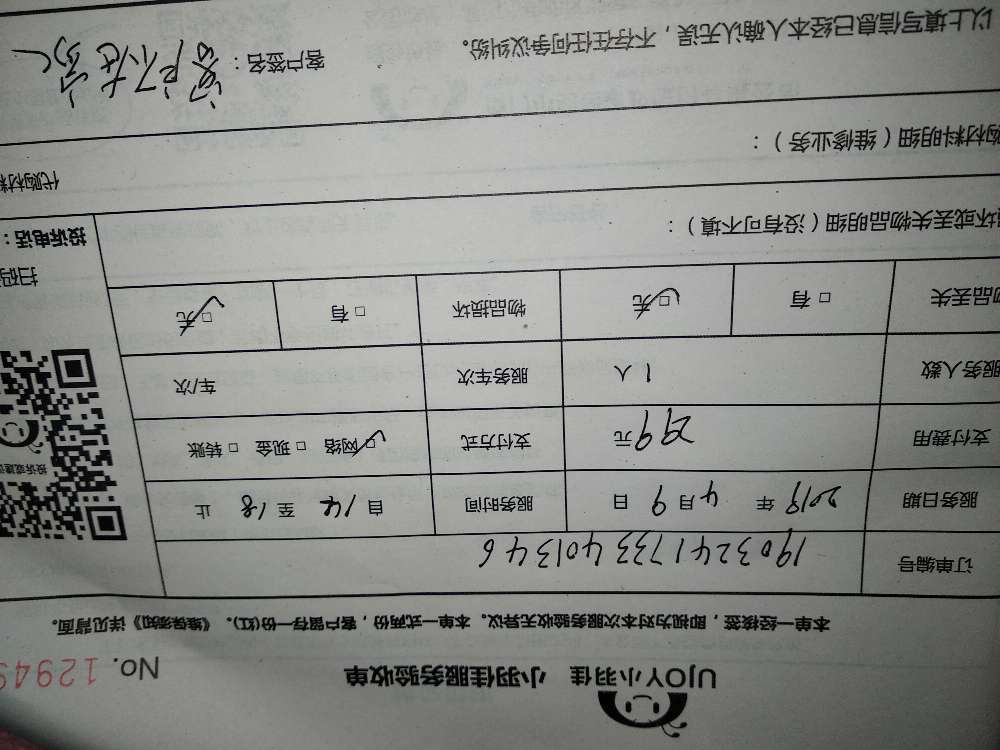 UJOY小羽佳 小羽佳服务验收单 No. 12949
本单一经核签，即视为对本次服务验收无异议。本单一式两份，客户留存一份(红)。《维保须知》详见背面。
订单编号 1903241733401346
服务日期 2019 年 4 月 9 日 服务时间 自 14 至 18 止
支付费用 299 元 支付方式 ☑网络 □现金 □转账
服务人数 1 人 服务车次 车/次
物品丢失 □有 ☑无 物品损坏 □有 ☑无
损坏或丢失物品明细（没有可不填）：
投诉或建议
扫码
投诉电话：
购材料明细（维修业务）： 代购材料
以上填写信息已经本人确认无误，不存在任何争议纠纷。 客户签名：客户不在家